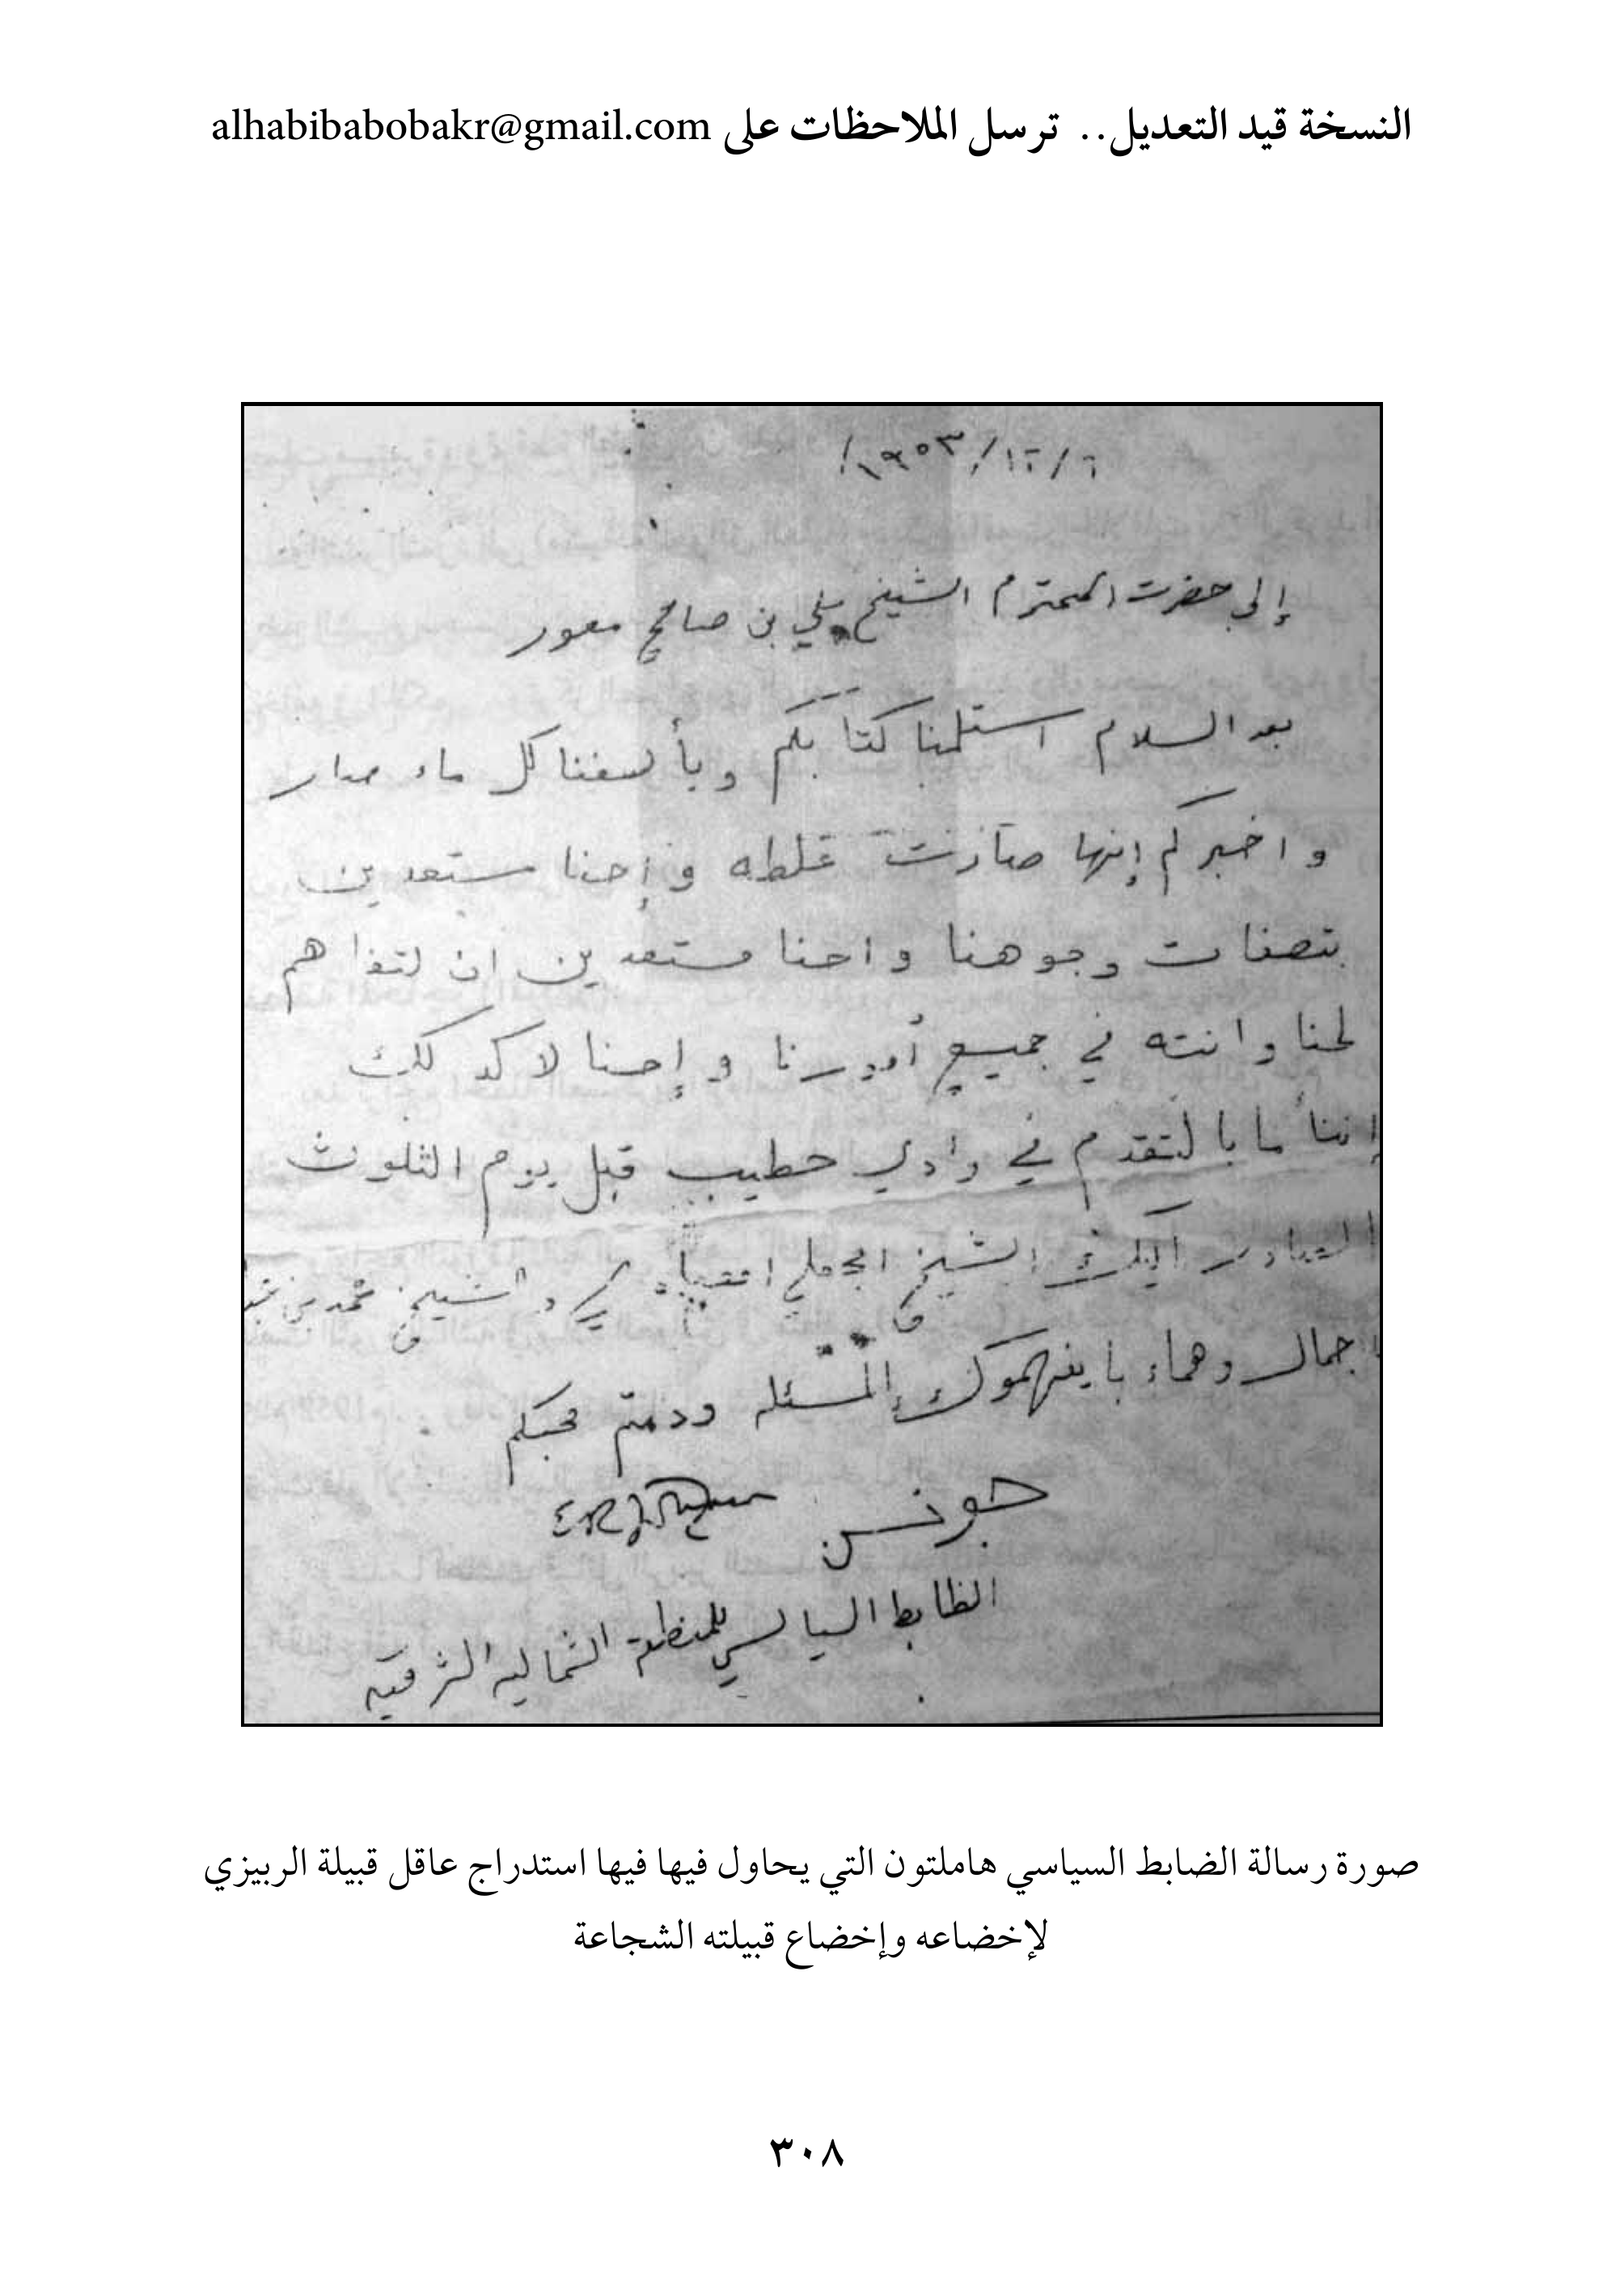 النسخة قيد التعديل.. ترسل الملاحظات على alhabibabobakr@gmail.com
إلى حضرت المحترم الشيخ علي بن صالح معور
بعد السلام استلمنا كتابكم ويأسفنا كل ماء صار
واخبركم إنها صارت غلطه وإحنا مستعدين
بتصفات وجوهنا واحنا مستعدين ان لتفاهم
لحنا وانته في جميع أمورنا وإحنا لاكد لك
إننا ما با لتقدم في وادي حطيب قبل يوم الثلوث
الشيخ والشيخ محمد بن
جمال وهماء با يفهموك المسئله ودمتم محبكم
جونس
الظابط السياسي للمنطقة الشماليه الشرقيه
صورة رسالة الضابط السياسي هاملتون التي يحاول فيها فيها استدراج عاقل قبيلة الربيزي
لإخضاعه وإخضاع قبيلته الشجاعة
٣٠٨